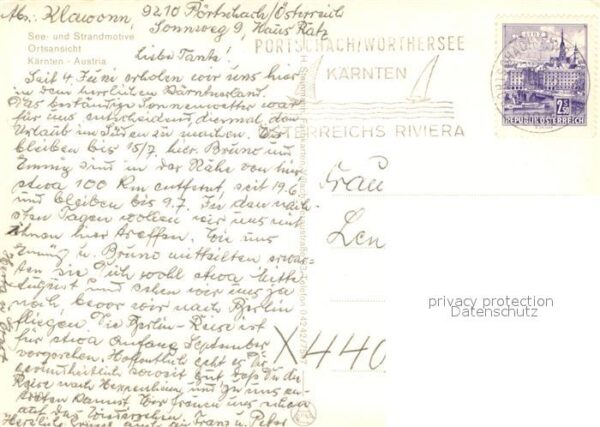 Abs. Klawonn, 9210 Pörtschach/Österreich
Sonnweg 9, Haus Ratz
See- und Strandmotive
Ortsansicht
Kärnten - Austria
Liebe Tante!
Seit 4. Juni erholen wir uns hier
in dem herrlichen Kärntnerland.
Das beständige Sonnenwetter war
für uns entscheidend, diesmal den
Urlaub im Süden zu machen. Wir
bleiben bis 15/7. hier. Bruno und
sind in der Nähe von hier
etwa 100 Km entfernt, seit 19.6
und bleiben bis 9.7. In den näch-
sten Tagen wollen wir uns mit
ihnen hier treffen. Wie uns
u. Bruno mitteilten erwar-
ten sie Dich wohl etwa Mitte
August und sehen wir uns ja
noch, bevor wir nach Berlin
fliegen. Die Berlin-Reise ist
für etwa Anfang September
vorgesehen. Hoffentlich geht es Dir
gesundheitlich soweit gut, daß Du die
Reise nach und zu uns an-
treten kannst. Wir freuen uns schon
auf das Wiedersehen.
Herzliche Grüsse
PÖRTSCHACH/WÖRTHERSEE
KÄRNTEN
ÖSTERREICHS RIVIERA
LINZ
2.50
REPUBLIK ÖSTERREICH
Frau
Len
X440
privacy protection
Datenschutz